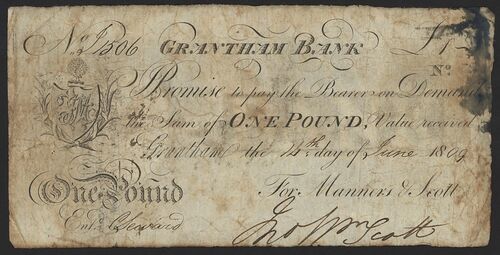 No. J1506 GRANTHAM BANK £1-
No.
I Promise to pay the Bearer on Demand
the Sum of ONE POUND, Value received
Grantham the 14th day of June 1809
One Pound For Manners & Scott
Ent. C Seward Jno Wm Scott